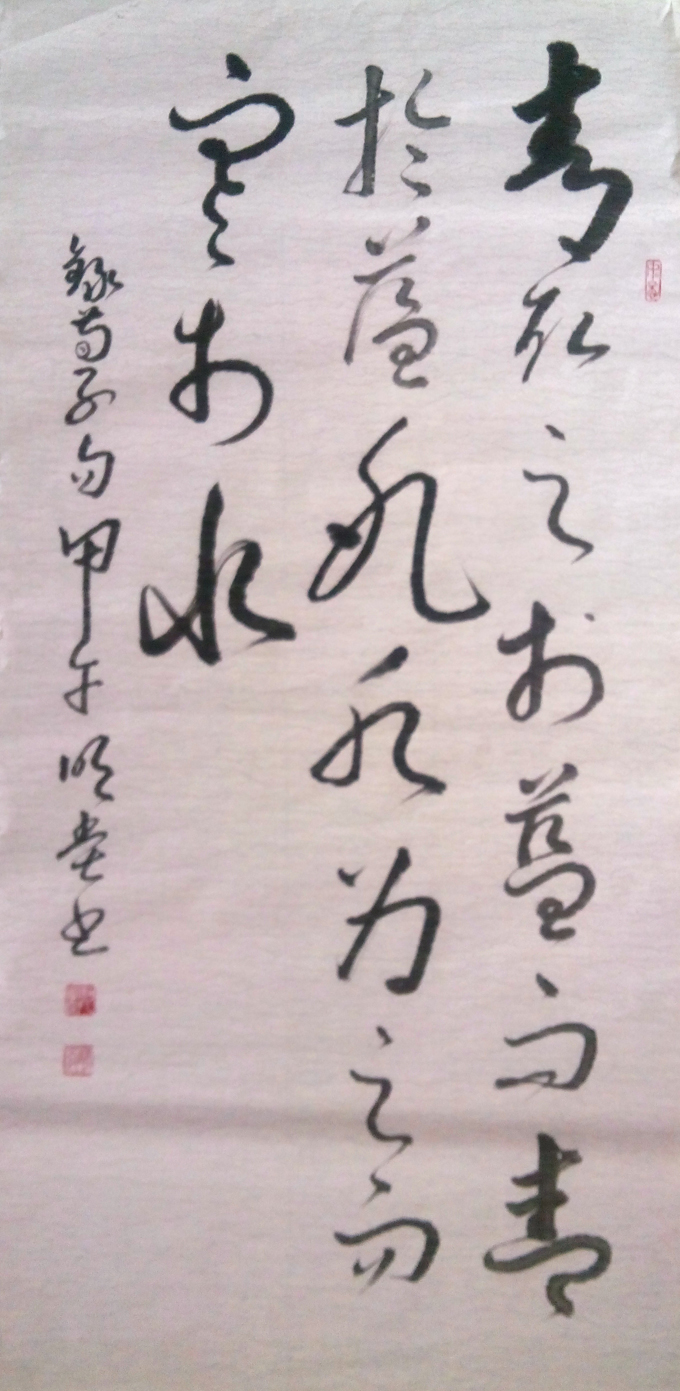 青取之於藍而青
於藍冰水为之而
寒於水
錄荀子句甲午明书